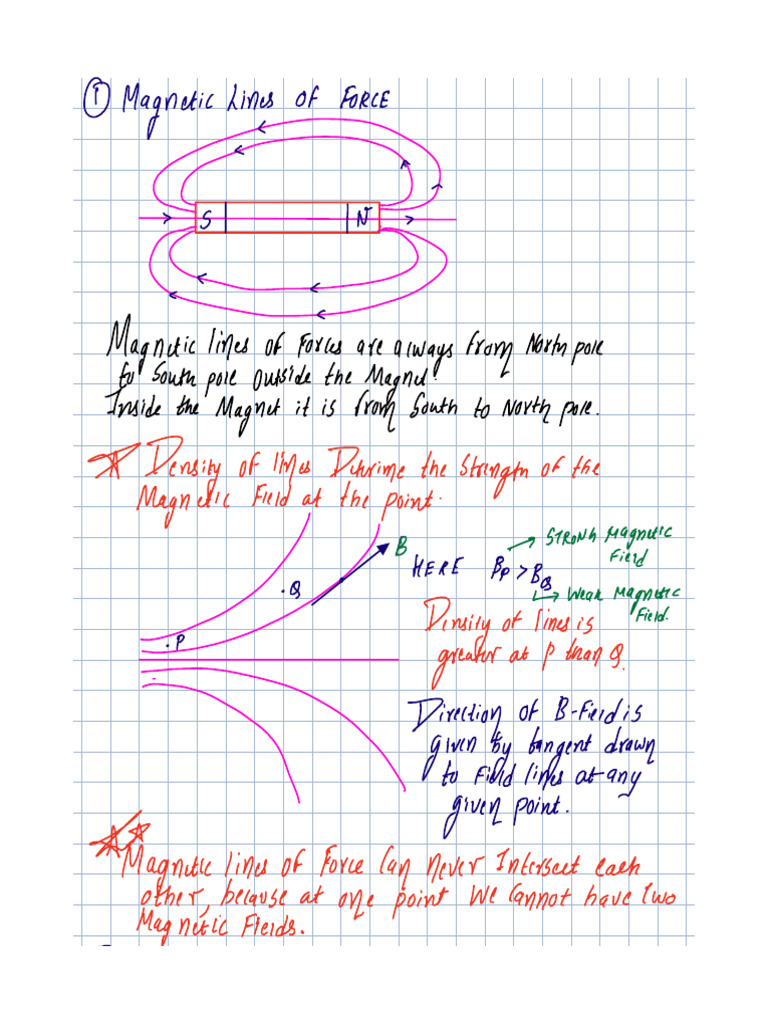 ① Magnetic Lines of Force
S N
Magnetic lines of Forces are always from North pole
to South pole outside the Magnet.
Inside the Magnet it is from South to North pole.
Density of lines Determine the Strength of the
Magnetic Field at the point.
B
Q
P
HERE Bp > BQ
STRONG Magnetic
Field
Weak Magnetic
Field.
Density of lines is
greater at P than Q.
Direction of B-Field is
given by tangent drawn
to Field lines at any
given point.
Magnetic lines of Force Can never Intersect each
other, because at one point We Cannot have Two
Magnetic Fields.